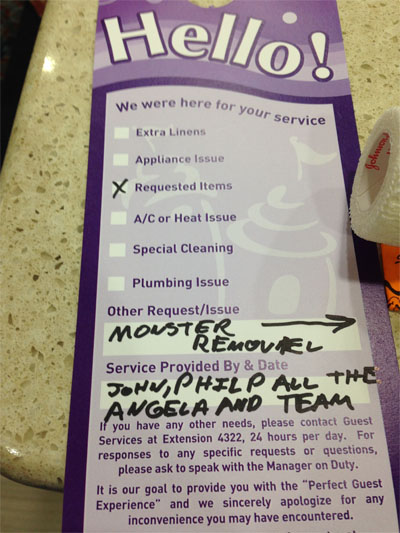 Hello!
We were here for your service
Extra Linens
Appliance Issue
X Requested Items
A/C or Heat Issue
Special Cleaning
Plumbing Issue
Other Request/Issue
MONSTER →
REMOVAEL
Service Provided By & Date
JOHN, PHILP ALL THE
ANGELA AND TEAM
If you have any other needs, please contact Guest
Services at Extension 4322, 24 hours per day. For
responses to any specific requests or questions,
please ask to speak with the Manager on Duty.
It is our goal to provide you with the "Perfect Guest
Experience" and we sincerely apologize for any
inconvenience you may have encountered.
Johnson